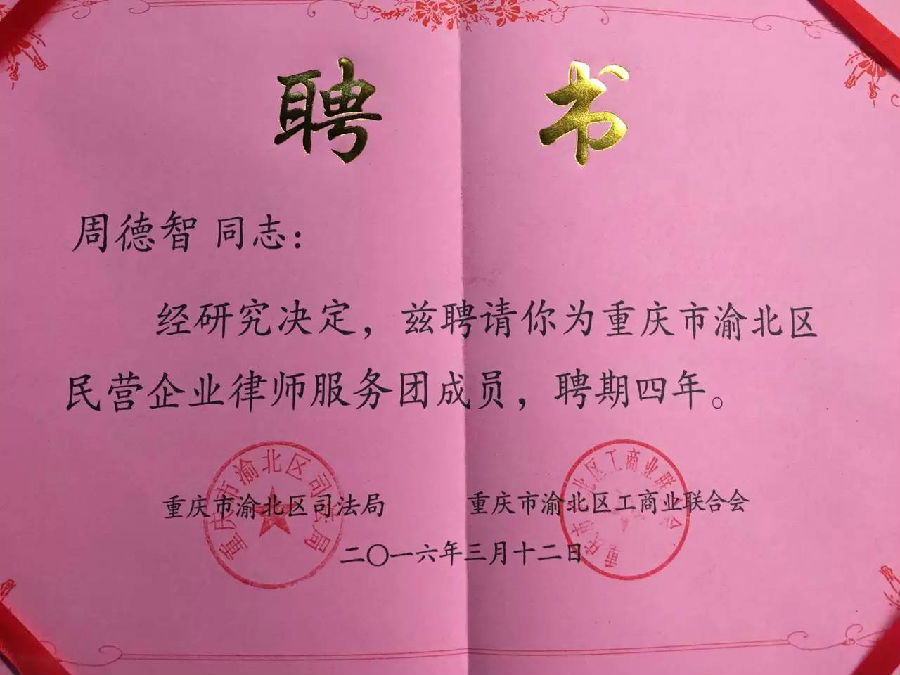 聘书
周德智 同志：
经研究决定，兹聘请你为重庆市渝北区
民营企业律师服务团成员，聘期四年。
重庆市渝北区司法局 重庆市渝北区工商业联合会
二〇一六年三月十二日
重庆市渝北区司法局
重庆市渝北区工商业联合会